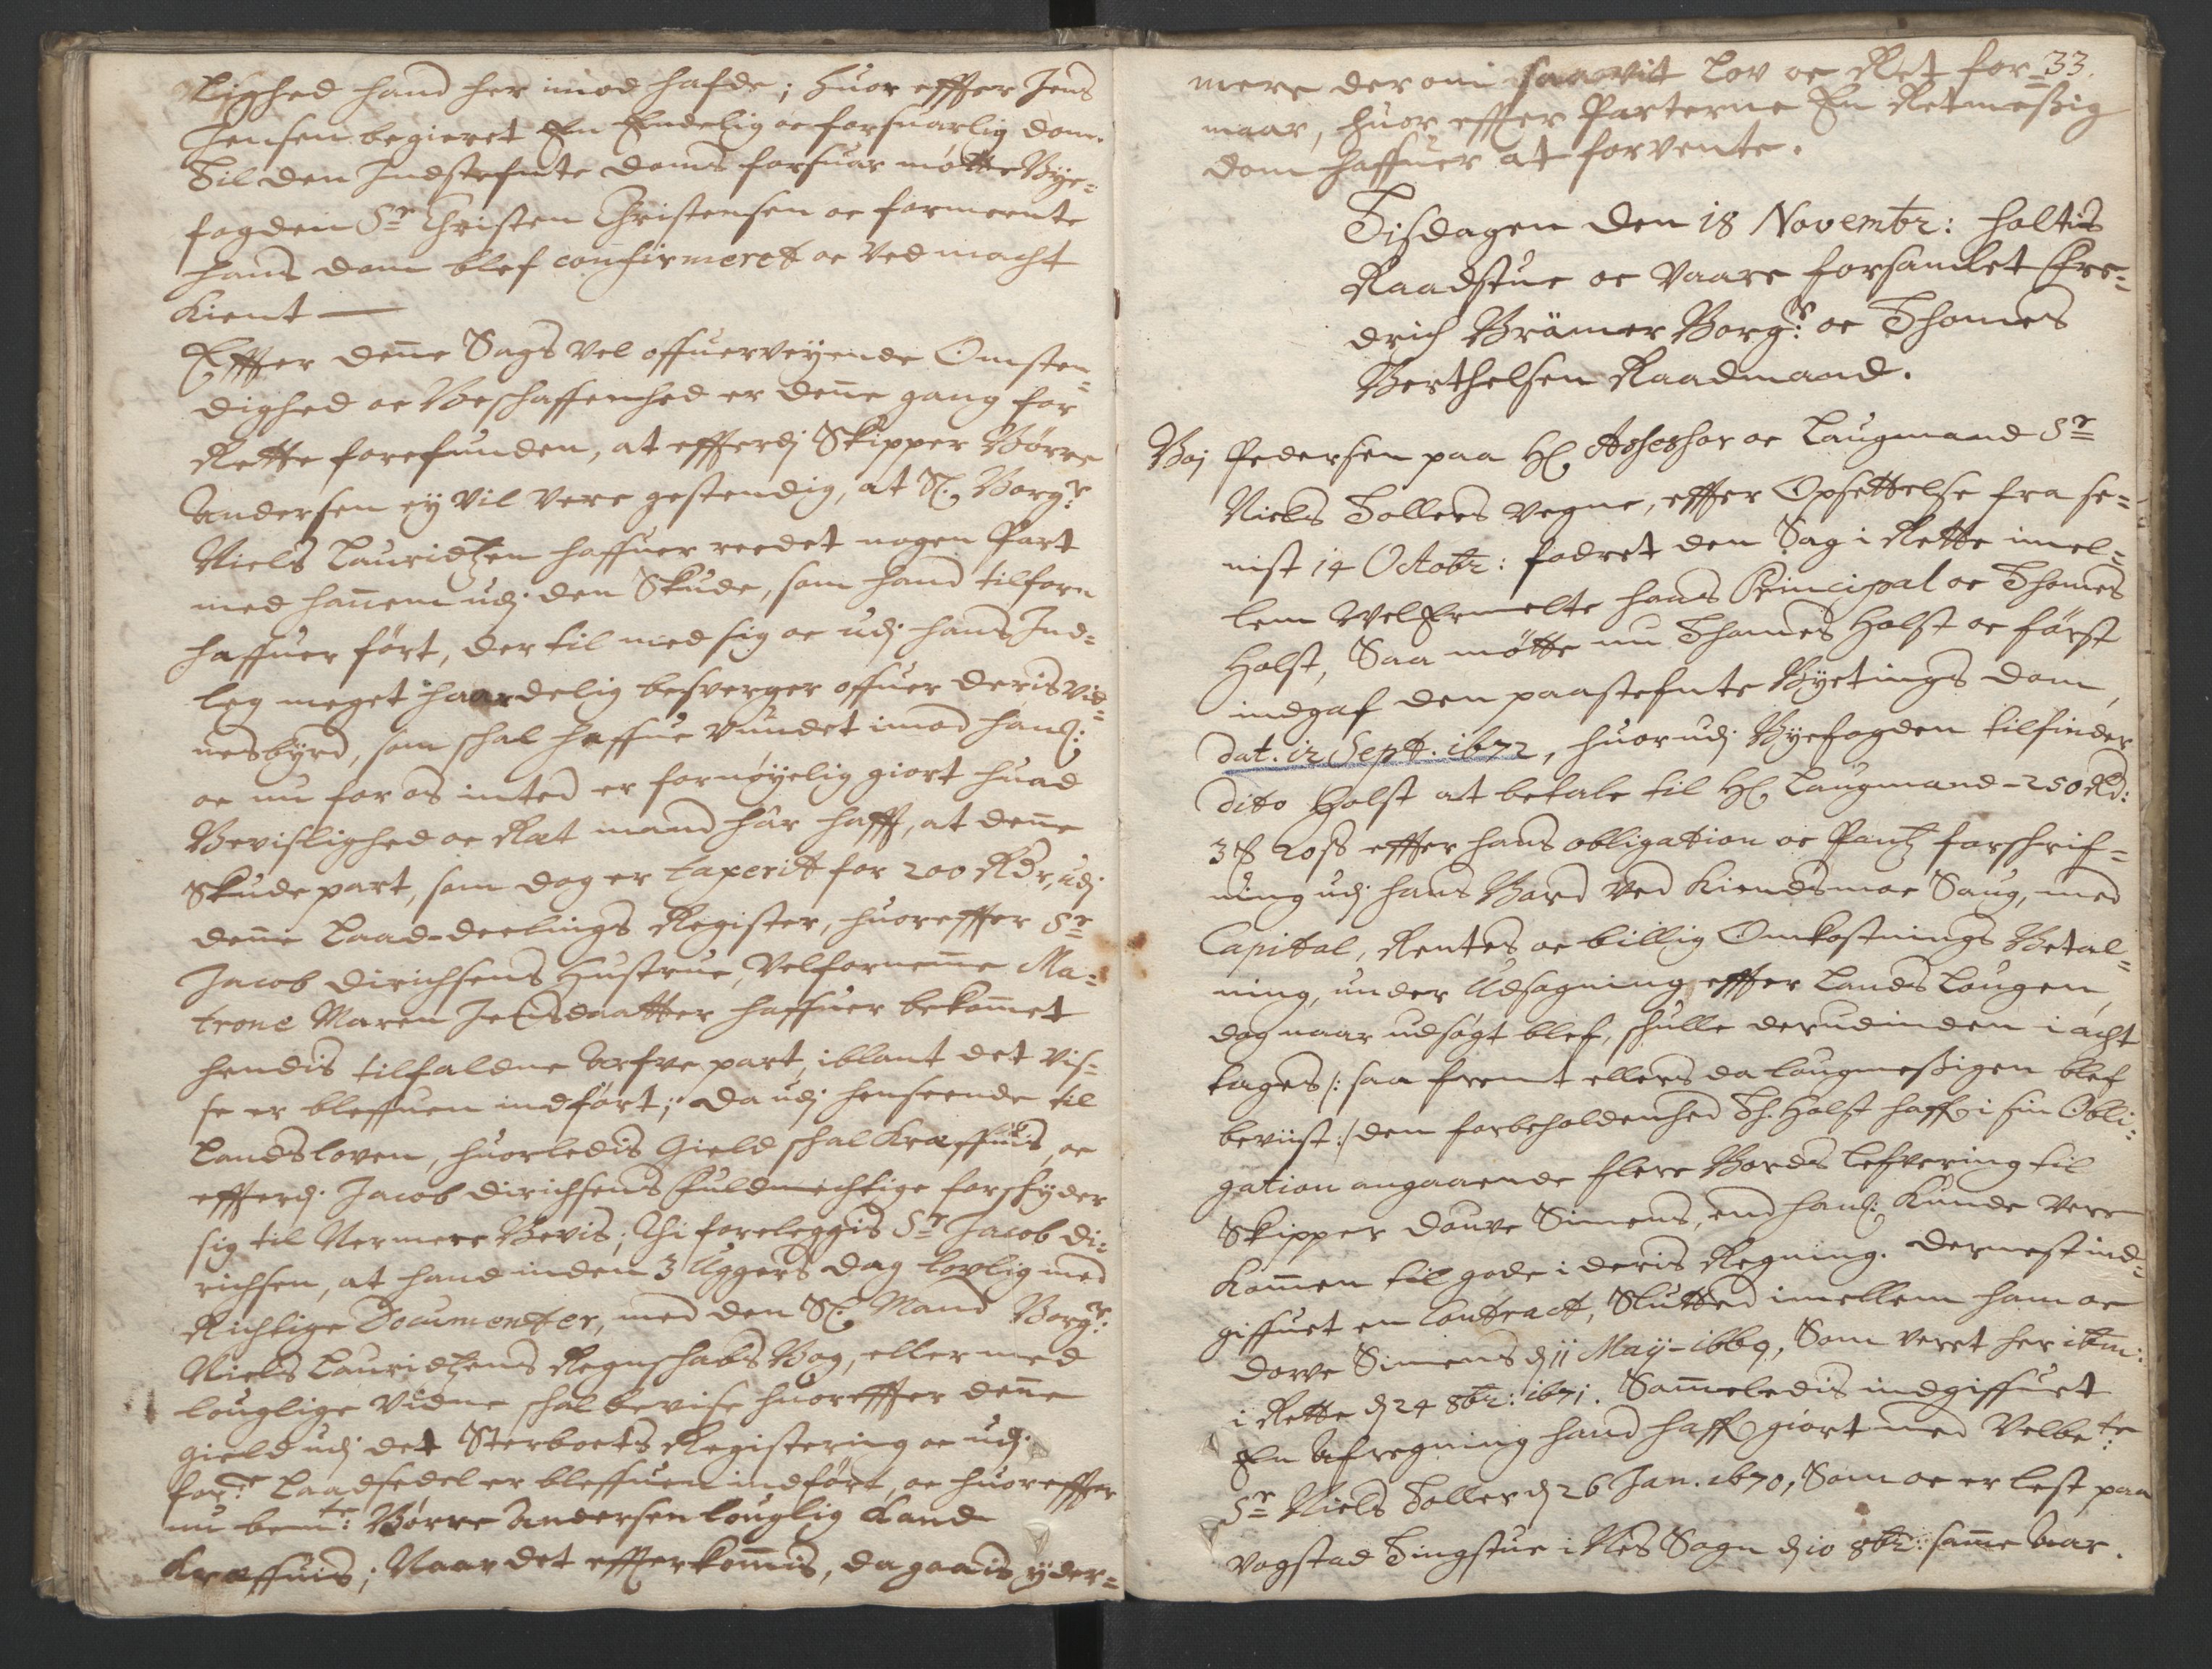 lighed hand her imod hafde; huor effter Jens
Jensen begieret En Endelig oc forsuarlig dom.
Til den Indstefnte doms forsuar møtte Bye-
fogden Sr Christen Christensen oc formeente
hans dom blef confirmeret oc Ved macht
kient —
Effter denne Sags Vel offuerveyende Omsten-
dighed oc Beschaffenhed er denne gang for
Rette forefunden, at effterdj Skipper Børre
Andersen ey Vil Vere gestendig, at Sl. Borgr:
Niels Lauridtzen haffuer reedet nogen Part
med hannem udj den Skude, som hand tilforn
haffuer ført, der til med sig oc udj hans Ind-
leg meget haardelig besverger offuer deris Vid-
nesbyrd, som schal haffue Vundet imod hans;
oc nu for os inted er fornøyelig giort huad
Bevislighed oc Ræt mand har hafft, at denne
Skude part, som dog er taxerit for 200 Rdr, udj
denne Laad-deelings Register, huoreffter Sr
Jacob Dirichsens Hustrue, Velfornemme Ma-
trone Maren Jensdaatter haffuer bekommet
hendis tilfaldne Arfve part, iblant det Vis-
se er bleffuen indført; Da udj henseende til
Landsloven, huorledis Gield schal Kreffuis, oc
effterdj Jacob Dirichsens Fuldmechtige forschyder
sig til Nermere Bevis; Thi foreleggis Sr Jacob Di-
richsen, at hand inden 3 Uggers dag lovlig med
Richtige Documenter, med den Sl. Mand Borgr:
Niels Lauridtzens Regnschabs Bog, eller med
louglige Vidne schal bevise huoreffter denne
gield udj det Sterboets Registering oc udj
forne Laadsedel er bleffuen indført, oc huoreffter
nu bemte: Børre Andersen louglig kand
Kreffuis; Naar det effterkommis, da gaais yder-
33.
mere der om saavit Lov oc Ret for-
maar, huor effter Parterne En Retmessig
dom haffuer at forvente.
Tisdagen den 18 Novembr: holtis
Raadstue oc Vaare forsamlet Fre-
drich Brämer Borgr: oc Thomes
Berthelsen Raadmand.
Boj Pedersen paa Hl Assessor oc Laugmand Sr
Niels Tollers Vegne, effter Opsettelse fra se-
nist 14 Octobr: fodret den Sag i Rette imel-
lem Velermelte hans Principal oc Thomes
Holst, Saa møtte nu Thomes Holst oc først
indgaf den paastefnte Byetings dom,
dat. 12 Sept. 1672, huorudj Byefogden tilfinder
dito Holst at betale til Hl Laugmand - 250 Rd:
3 # 20 ß effter hans obligation oc Pantz forschrif-
ning udj hans Bord Ved Kiendsmoe Saug, med
Capital, Rentes oc billig Omkostnings Betal-
ning, under Udsøgning effter Lands Lougen,
dog naar udsøgt blef, schulle derudinden i acht
tages /: saa fremt ellers da lougmessigen blef
beviist :/ den forbeholdenhed Th. Holst haffr i sin Obli-
gation angaaende flere Bords lefvering til
Skipper Douve Simens, end hans Kunde Vere
kommen til gode i deris Regning. Dernest ind-
giffuet en Contract, Slutted imellem ham oc
Dovve Simens d 11 Maij - 1669, Som Veret her
i Rette d 24 8br: 1671. Sammeledis indgiffuet
En Afregning hand haffr giort med Velbete:
Sr Niels Toller d 26 Jan. 1670, Som oc er lest paa
Vogstad Tingstue i Nes Sogn d 10 8br: samme Aar.